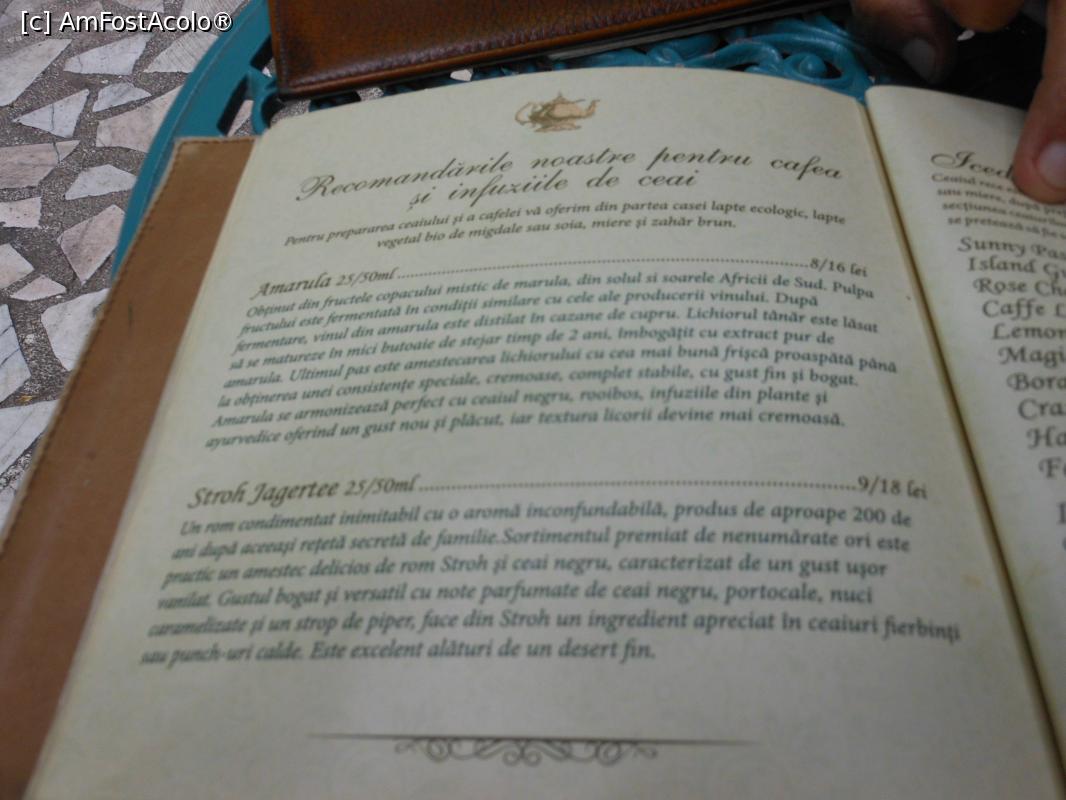 [c] AmFostAcolo®
Recomandările noastre pentru cafea
și infuziile de ceai
Pentru prepararea ceaiului și a cafelei vă oferim din partea casei lapte ecologic, lapte
vegetal bio de migdale sau soia, miere și zahăr brun.
Amarula 25/50ml ........ 8/16 lei
Obținut din fructele copacului mistic de marula, din solul si soarele Africii de Sud. Pulpa
fructului este fermentată în condiții similare cu cele ale producerii vinului. După
fermentare, vinul din amarula este distilat în cazane de cupru. Lichiorul tânăr este lăsat
să se matureze în mici butoaie de stejar timp de 2 ani, îmbogățit cu extract pur de
amarula. Ultimul pas este amestecarea lichiorului cu cea mai bună frișcă proaspătă până
la obținerea unei consistențe speciale, cremoase, complet stabile, cu gust fin și bogat.
Amarula se armonizează perfect cu ceaiul negru, rooibos, infuziile din plante și
ayurvedice oferind un gust nou și plăcut, iar textura licorii devine mai cremoasă.
Stroh Jagertee 25/50ml ........ 9/18 lei
Un rom condimentat inimitabil cu o aromă inconfundabilă, produs de aproape 200 de
ani după aceeași rețetă secretă de familie.Sortimentul premiat de nenumărate ori este
practic un amestec delicios de rom Stroh și ceai negru, caracterizat de un gust ușor
vanilat. Gustul bogat și versatil cu note parfumate de ceai negru, portocale, nuci
caramelizate și un strop de piper, face din Stroh un ingredient apreciat în ceaiuri fierbinți
sau punch-uri calde. Este excelent alături de un desert fin.
Iced
Ceaiul rece
sau miere, după
secțiunea ceaiurilor
se pretează să fie
Sunny Pas
Island
Rose Cha
Caffe L
Lemon
Magi
Bora
Cra
Ha